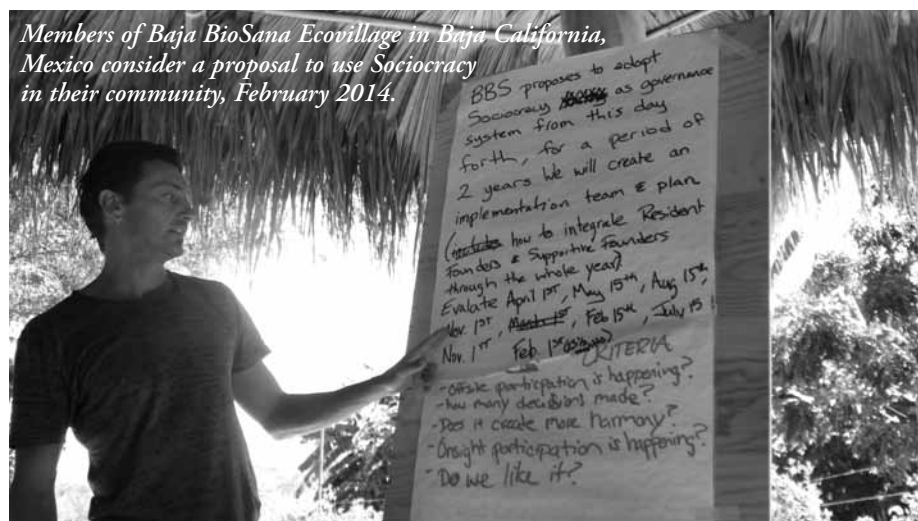 Members of Baja BioSana Ecovillage in Baja California,
Mexico consider a proposal to use Sociocracy
in their community, February 2014.
BBS proposes to adopt
Sociocracy as governance
system from this day
forth, for a period of
2 years We will create an
implementation team & plan
(includes how to integrale Resident
Founders & Supportive Founders
through the whole year)
Evalate April 1ST, May 15th, Aug 15th,
Nov. 1ST, March 1st, Feb 15th, July 15!
Nov. 1ST Feb 1st
CRITERIA
-offsite participation is happening?
-how many decisions made?
-Does it create more harmony?
-Onsight participation is happening?
-Do we like it?